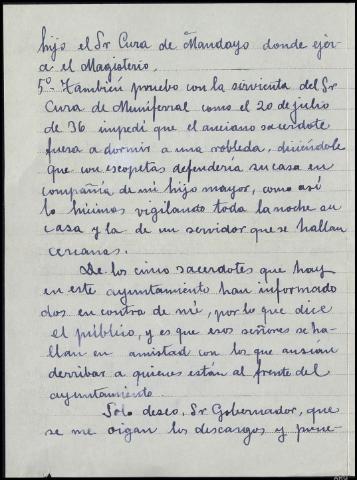 hijo el Sr Cura de Mandayo donde ejér-
ce el Magisterio.
5º. También pruebo con la sirvienta del Sr
Cura de Muniferral como el 20 de julio
de 36 impedí que el anciano sacerdote
fuera a dormir a una robleda, diciéndole
que con escopetas defendería su casa en
compañía de mi hijo mayor, como así
lo hicimos vigilando toda la noche su
casa y la de un servidor que se hallan
cercanas.
De los cinco sacerdotes que hay
en este ayuntamiento han informado
dos en contra de mí, por lo que dice
el público, y es que esos señores se ha-
llan en amistad con los que ansían
derribar a quienes están al frente del
ayuntamiento.
Solo deseo, Sr Gobernador, que
se me oigan los descargos y prue-